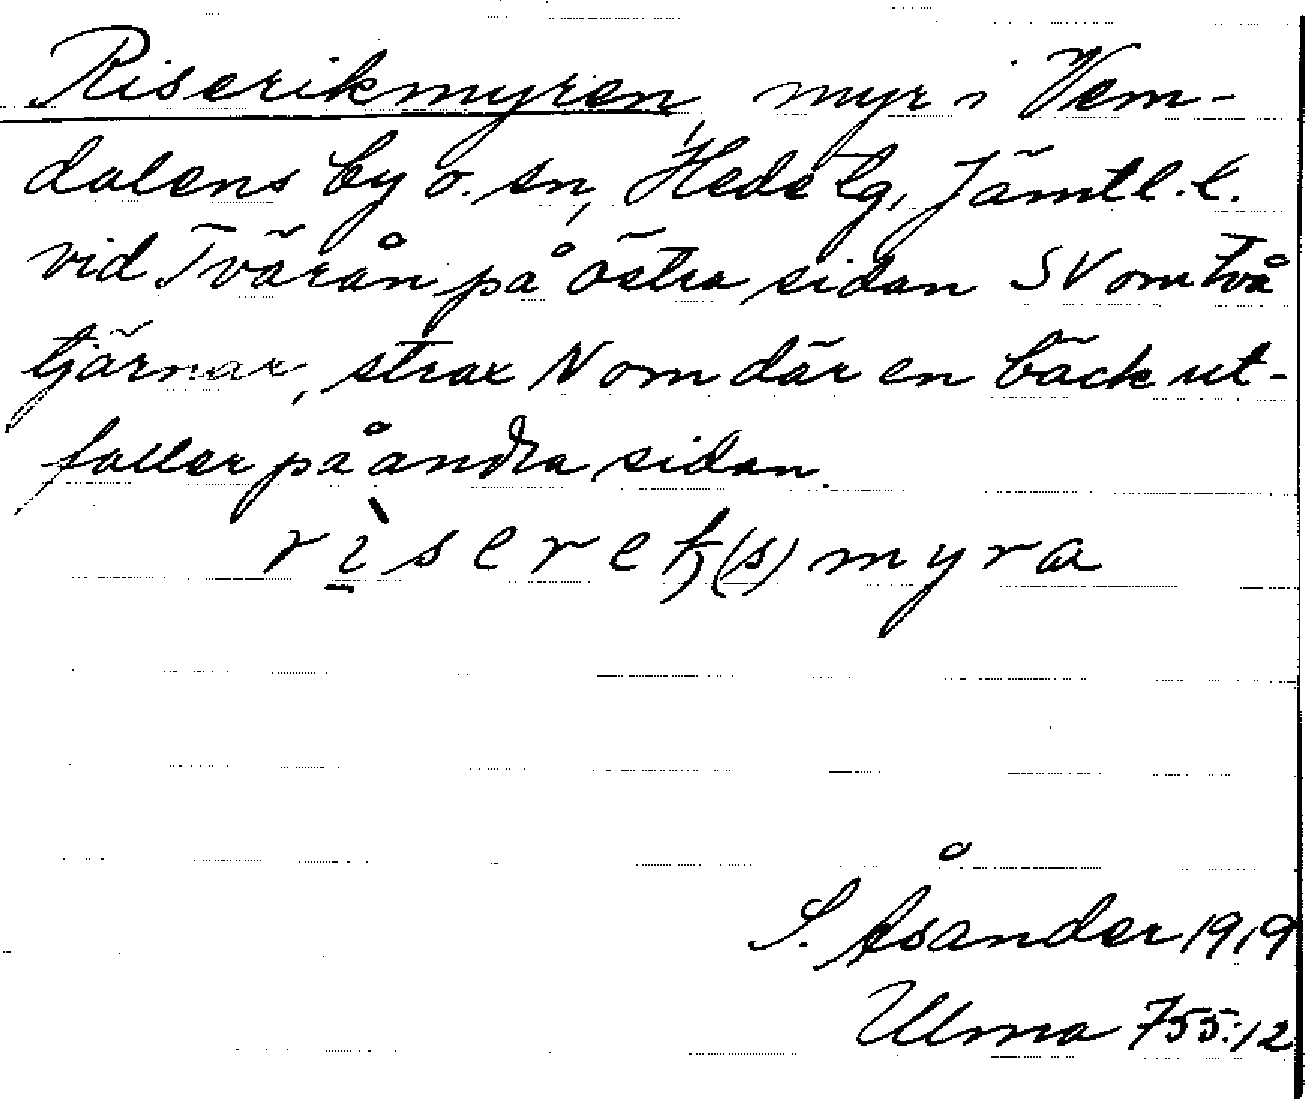 Riserikmyren, myr i Vem-
dalens by o. sn, Hede tg, Jämtl. l.
vid Tvärån på östra sidan SV om två
tjärnar, strax N om där en bäck ut-
faller på andra sidan.
rı̱̀seret̡(s)myra
S. Åsander 1919
Ulma 755:12